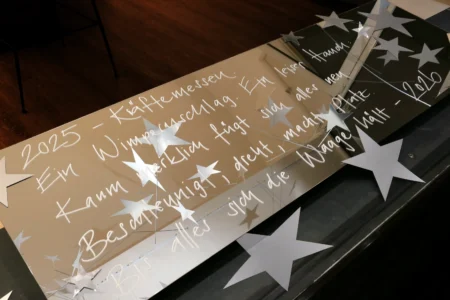 2025 - Kräftemessen
Ein Wimpernschlag Ein leiser Hauch
Kaum merklich fügt sich alles neu
Beschleunigt, dreht, macht Platz
Bis alles sich die Waage hält - 2026